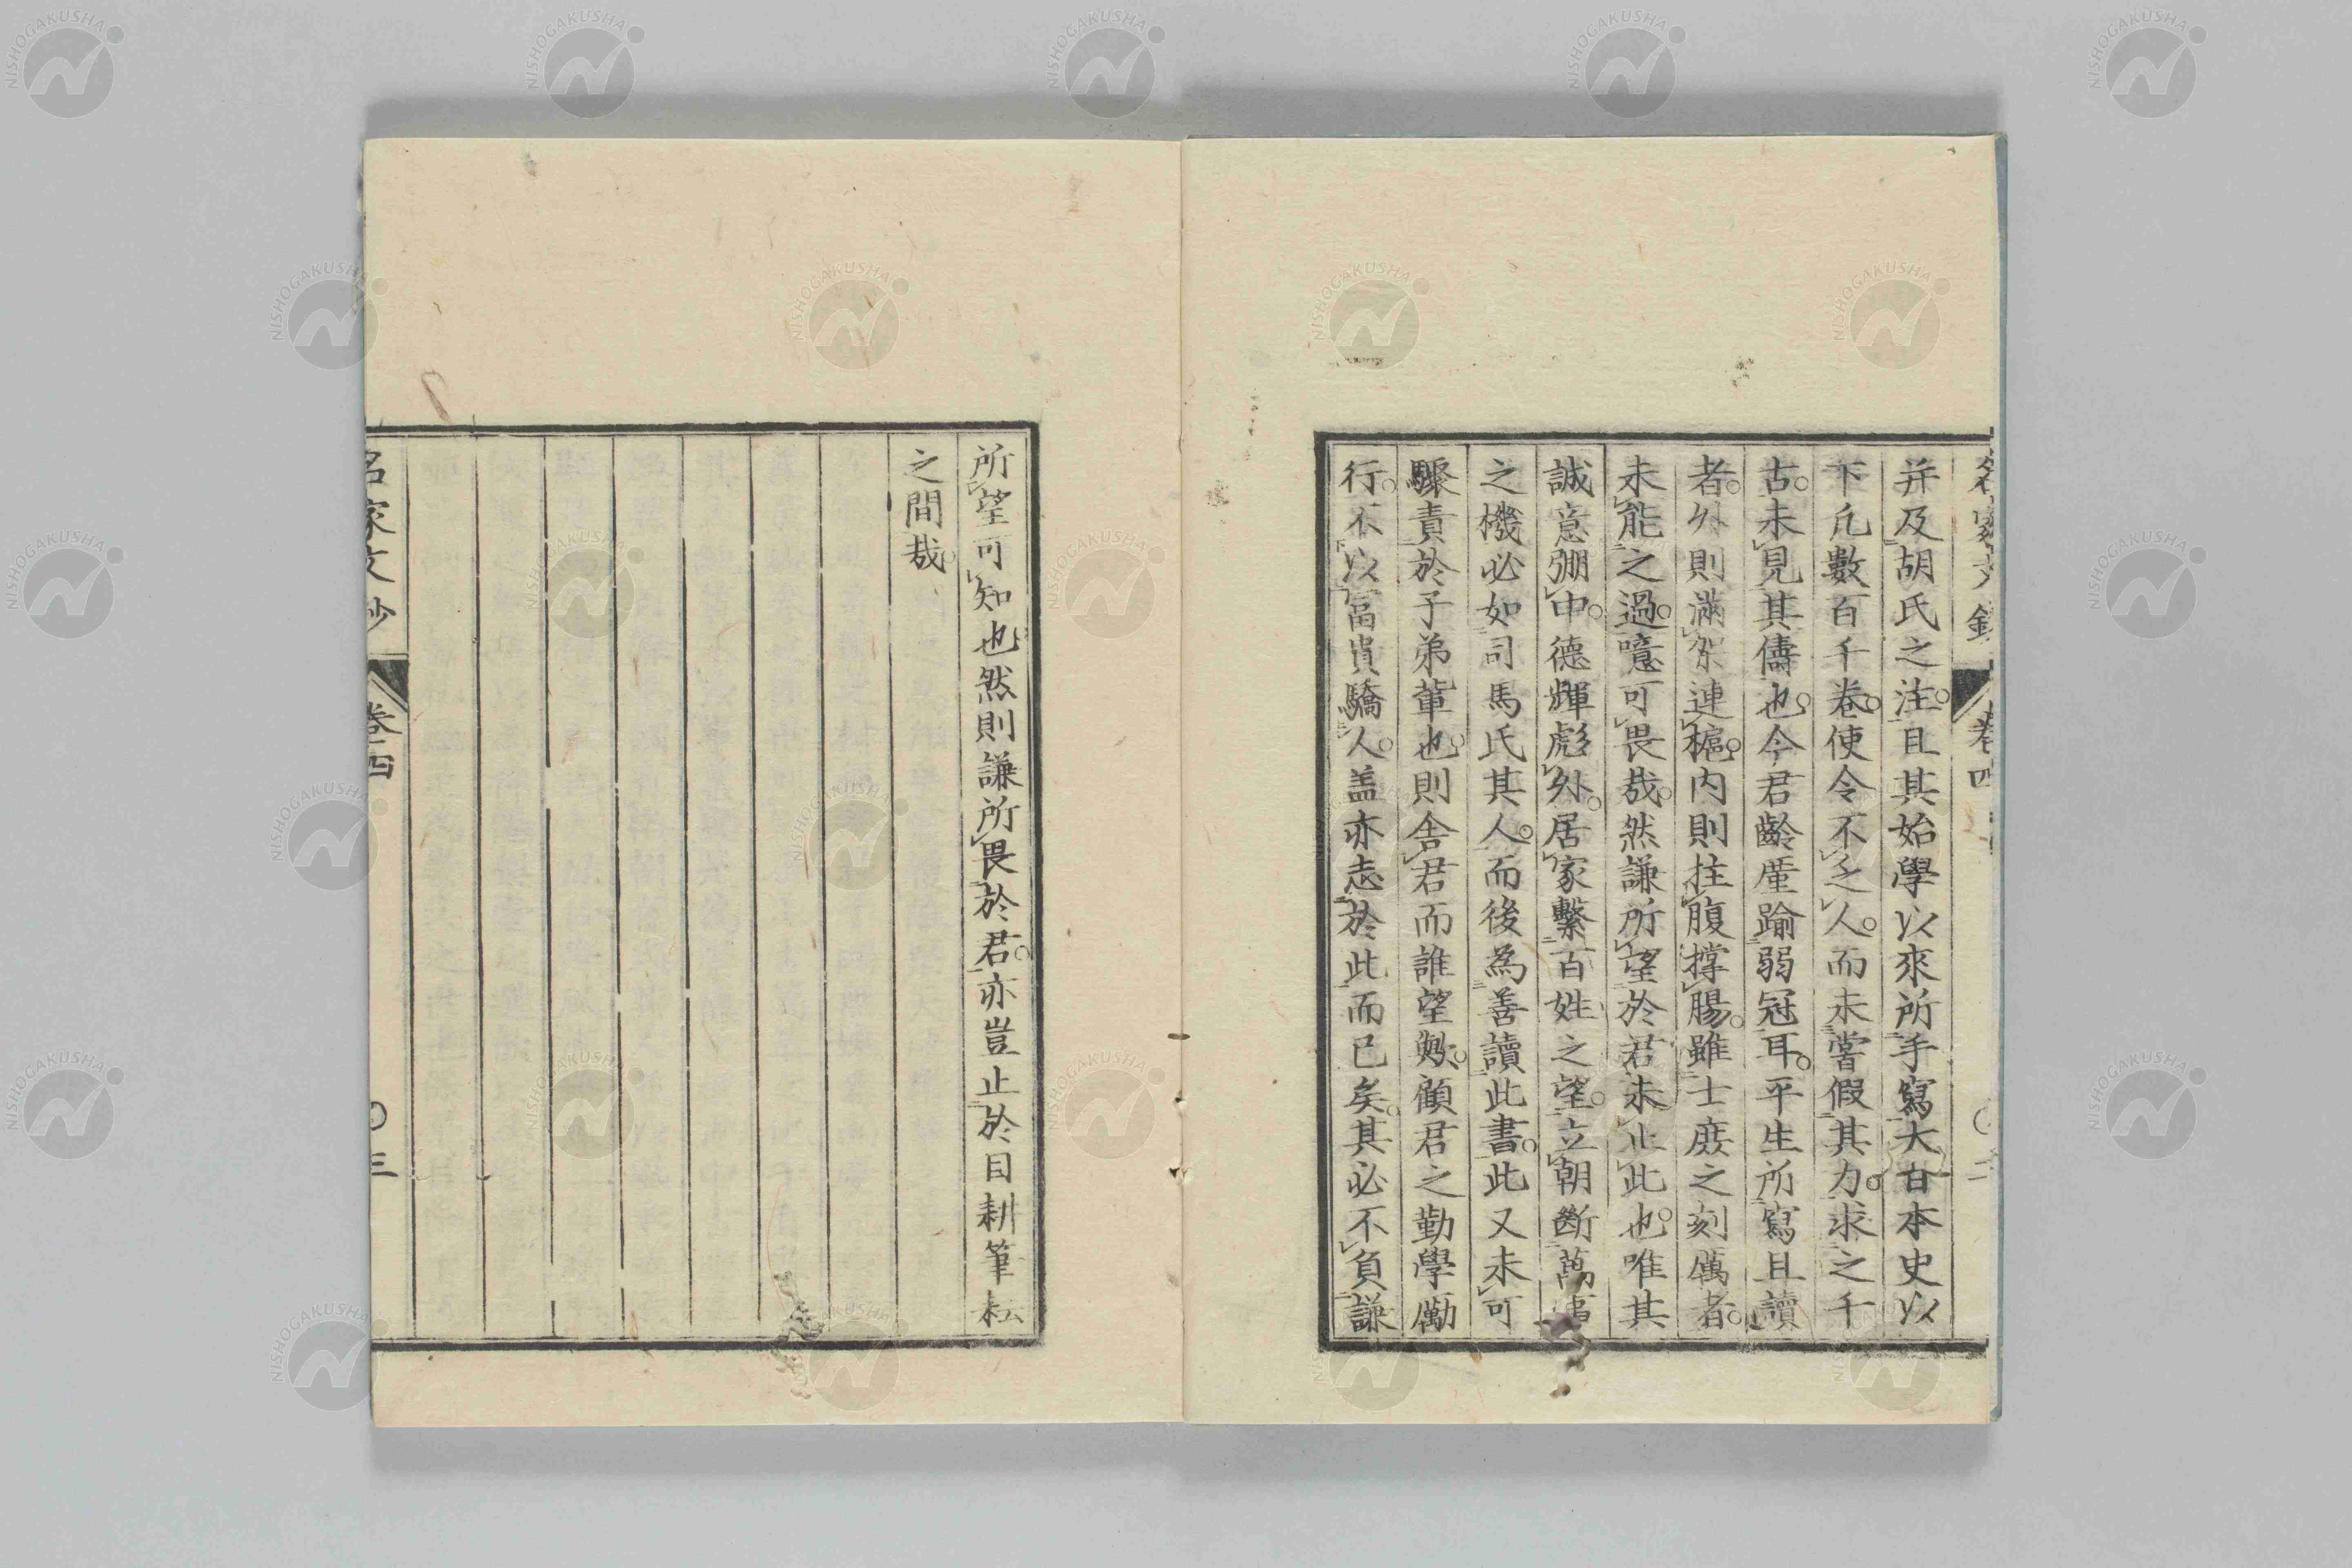 并及胡氏之注。且其始學以來所手寫大日本史以
下凢數百千卷。使令不乏人。而未嘗假其力。求之千
古。未見其儔也。今君齡廑踰弱冠耳。平生所寫且讀
者。外則滿架連櫨。内則拄腹撑腸。雖士庻之刻厲者。
未能之過。噫可畏哉。然謙所望於君未止此也。唯其
誠意弸中。德輝彪外。居家繫百姓之望。立朝斷萬
之機必如司馬氏其人。而後為善讀此書。此又未可
驟責於子弟輩也。則舎君而誰望歟。顧君之勤學勵
行。不以富貴驕人。盖亦志於此而已矣。其必不負謙
所望可知也。然則謙所畏於君。亦豈止於目耕筆耘
之間哉。
名家文抄
卷四
三
卷四
二
NISHOGAKUSHA